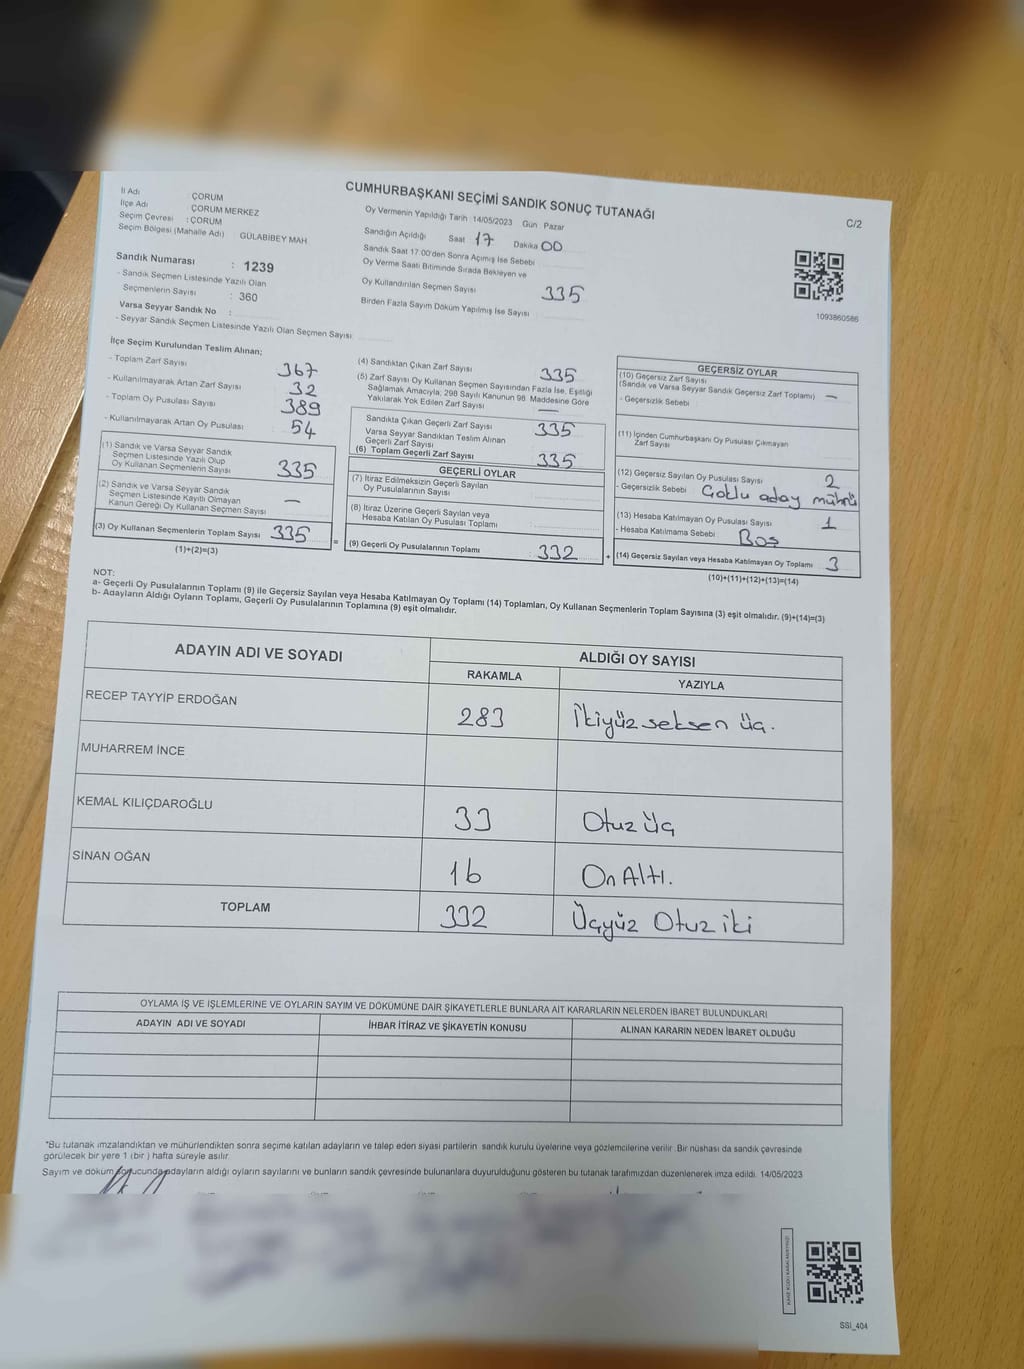 CUMHURBAŞKANI SEÇİMİ SANDIK SONUÇ TUTANAĞI
C/2
İl Adı : ÇORUM
İlçe Adı : ÇORUM MERKEZ
Seçim Çevresi : ÇORUM
Seçim Bölgesi (Mahalle Adı) : GÜLABİBEY MAH
Sandık Numarası : 1239
- Sandık Seçmen Listesinde Yazılı Olan
Seçmenlerin Sayısı : 360
Varsa Seyyar Sandık No :
- Seyyar Sandık Seçmen Listesinde Yazılı Olan Seçmen Sayısı:
Oy Vermenin Yapıldığı Tarih 14/05/2023 Gün Pazar
Sandığın Açıldığı Saat 17 Dakika 00
Sandık Saat 17.00'den Sonra Açılmış İse Sebebi
Oy Verme Saati Bitiminde Sırada Bekleyen ve
Oy Kullandırılan Seçmen Sayısı 335
Birden Fazla Sayım Döküm Yapılmış İse Sayısı
1093860586
İlçe Seçim Kurulundan Teslim Alınan;
- Toplam Zarf Sayısı 367
- Kullanılmayarak Artan Zarf Sayısı 32
- Toplam Oy Pusulası Sayısı 389
- Kullanılmayarak Artan Oy Pusulası 54
(1) Sandık ve Varsa Seyyar Sandık
Seçmen Listesinde Yazılı Olup
Oy Kullanan Seçmenlerin Sayısı 335
(2) Sandık ve Varsa Seyyar Sandık
Seçmen Listesinde Kayıtlı Olmayan
Kanun Gereği Oy Kullanan Seçmen Sayısı —
(3) Oy Kullanan Seçmenlerin Toplam Sayısı 335
(1)+(2)=(3)
=
(4) Sandıktan Çıkan Zarf Sayısı 335
(5) Zarf Sayısı Oy Kullanan Seçmen Sayısından Fazla İse, Eşitliği
Sağlamak Amacıyla, 298 Sayılı Kanunun 98. Maddesine Göre
Yakılarak Yok Edilen Zarf Sayısı —
Sandıkta Çıkan Geçerli Zarf Sayısı 335
Varsa Seyyar Sandıktan Teslim Alınan
Geçerli Zarf Sayısı
(6) Toplam Geçerli Zarf Sayısı 335
GEÇERLİ OYLAR
(7) İtiraz Edilmeksizin Geçerli Sayılan
Oy Pusulalarının Sayısı
(8) İtiraz Üzerine Geçerli Sayılan veya
Hesaba Katılan Oy Pusulası Toplamı
(9) Geçerli Oy Pusulalarının Toplamı 332
+
GEÇERSİZ OYLAR
(10) Geçersiz Zarf Sayısı
(Sandık ve Varsa Seyyar Sandık Geçersiz Zarf Toplamı) —
- Geçersizlik Sebebi
(11) İçinden Cumhurbaşkanı Oy Pusulası Çıkmayan
Zarf Sayısı
(12) Geçersiz Sayılan Oy Pusulası Sayısı 2
- Geçersizlik Sebebi Çoklu aday mührü
(13) Hesaba Katılmayan Oy Pusulası Sayısı 1
- Hesaba Katılmama Sebebi Boş
(14) Geçersiz Sayılan veya Hesaba Katılmayan Oy Toplamı 3
(10)+(11)+(12)+(13)=(14)
NOT:
a- Geçerli Oy Pusulalarının Toplamı (9) ile Geçersiz Sayılan veya Hesaba Katılmayan Oy Toplamı (14) Toplamları, Oy Kullanan Seçmenlerin Toplam Sayısına (3) eşit olmalıdır. (9)+(14)=(3)
b- Adayların Aldığı Oyların Toplamı, Geçerli Oy Pusulalarının Toplamına (9) eşit olmalıdır.
ADAYIN ADI VE SOYADI ALDIĞI OY SAYISI
RAKAMLA YAZIYLA
RECEP TAYYİP ERDOĞAN 283 İkiyüz seksen üç.
MUHARREM İNCE
KEMAL KILIÇDAROĞLU 33 Otuz üç
SİNAN OĞAN 16 On Altı.
TOPLAM 332 Üçyüz Otuz iki
OYLAMA İŞ VE İŞLEMLERİNE VE OYLARIN SAYIM VE DÖKÜMÜNE DAİR ŞİKAYETLERLE BUNLARA AİT KARARLARIN NELERDEN İBARET BULUNDUKLARI
ADAYIN ADI VE SOYADI İHBAR İTİRAZ VE ŞİKAYETİN KONUSU ALINAN KARARIN NEDEN İBARET OLDUĞU
*Bu tutanak imzalandıktan ve mühürlendikten sonra seçime katılan adayların ve talep eden siyasi partilerin sandık kurulu üyelerine veya gözlemcilerine verilir. Bir nüshası da sandık çevresinde
görülecek bir yere 1 (bir) hafta süreyle asılır.
Sayım ve döküm sonucunda adayların aldığı oyların sayılarını ve bunların sandık çevresinde bulunanlara duyurulduğunu gösteren bu tutanak tarafımızdan düzenlenerek imza edildi. 14/05/2023
SSI_404